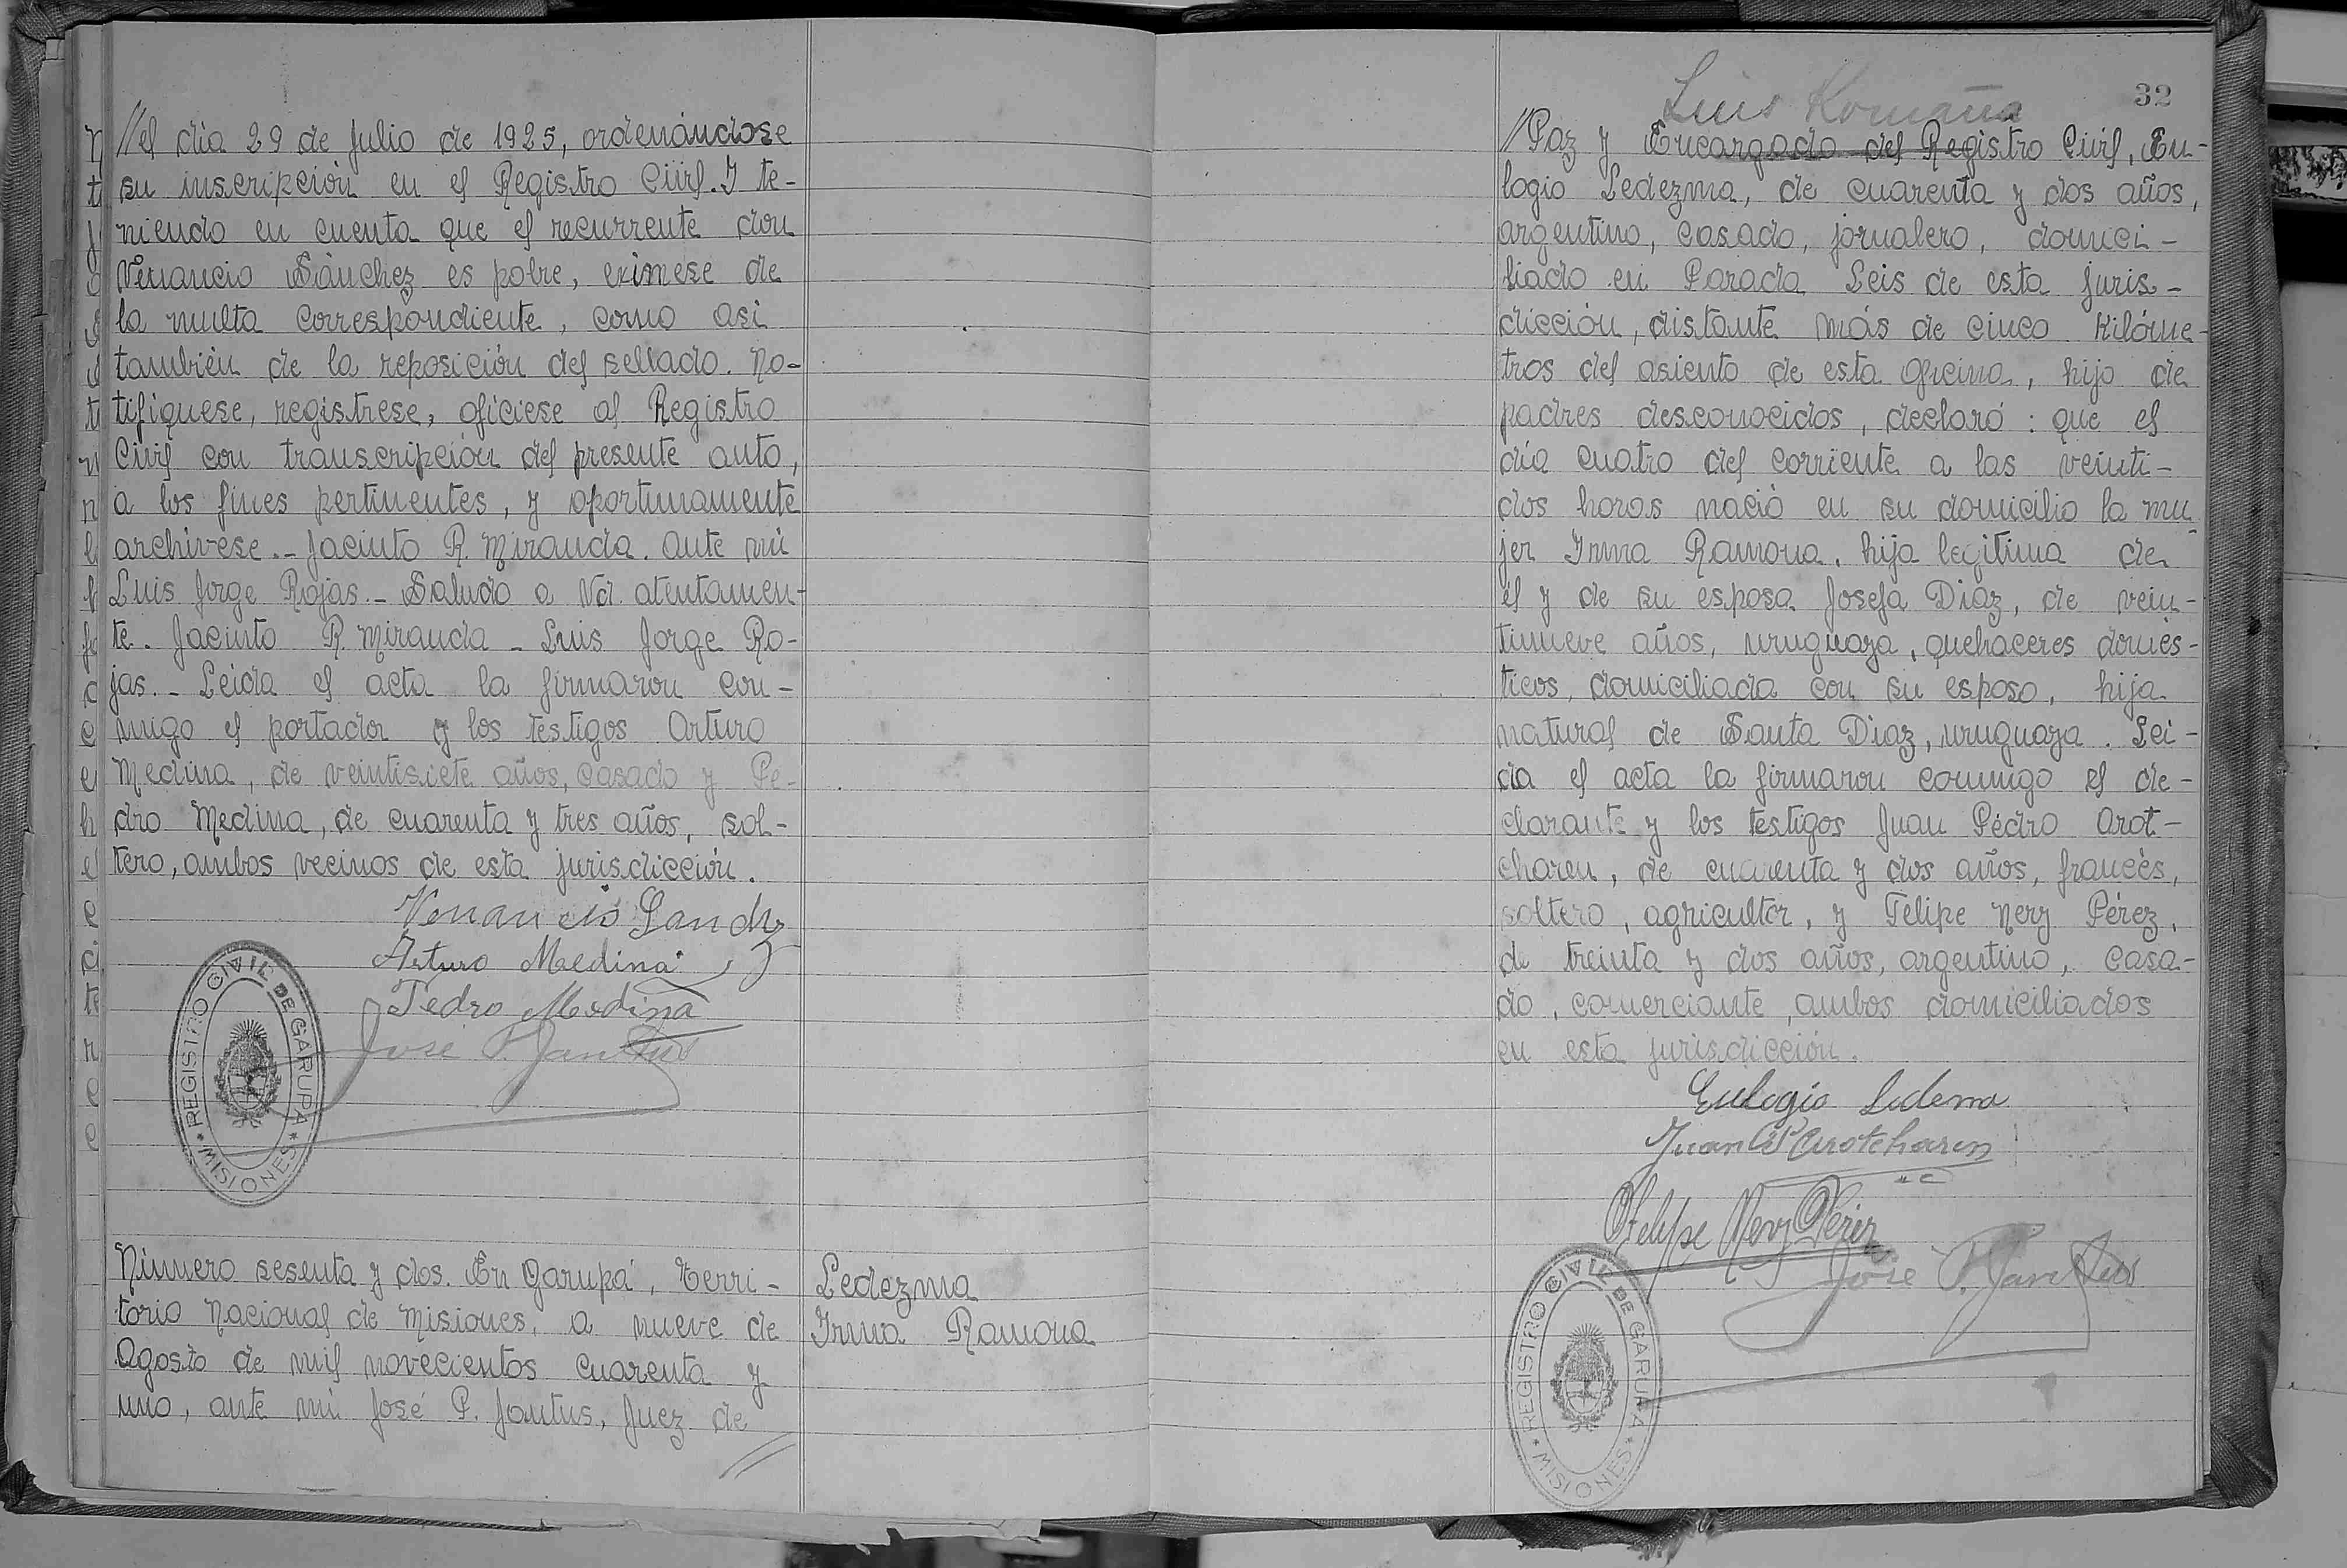 //el día 29 de Julio de 1925, ordenándose
su inscripción en el Registro Civil. Y te-
niendo en cuenta que el recurrente don
Venancio Sánchez es pobre, exímese de
la multa correspondiente, como asi
también de la reposición del sellado. No-
tifíquese, regístrese, ofíciese al Registro
Civil con transcripción del presente auto,
a los fines pertinentes, y oportunamente
archívese.- Jacinto R. Miranda. Ante mi
Luis Jorge Rojas.- Saludo a Vd. atentamen-
te. Jacinto R. Miranda - Luis Jorge Ro-
jas.- Leida el acta la firmaron con-
migo el portador y los testigos Arturo
Medina, de veintisiete años, casado y Pe-
dro Medina, de cuarenta y tres años, sol-
tero, ambos vecinos de esta jurisdicción.
Venancio Sanchz
Arturo Medina
Pedro Medina
José P. Jantus
REGISTRO CIVIL DE GARUPA
* MISIONES *
Número sesenta y dos. En Garupá, Terri-
torio Nacional de Misiones, a nueve de
Agosto de mil novecientos cuarenta y
uno, ante mi José P. Jantus, Juez de
//
Ledezma
Irma Ramona
32
Luis Romaña
//Paz y Encargado del Registro Civil, Eu-
logio Ledezma, de cuarenta y dos años,
argentino, casado, jornalero, domici-
liado en Parada Leis de esta juris-
dicción, distante más de cinco kilóme-
tros del asiento de esta oficina, hijo de
padres desconocidos, declaró: que el
día cuatro del corriente a las veinti-
dos horas nació en su domicilio la mu-
jer Irma Ramona, hija legítima de
él y de su esposa Josefa Díaz, de vein-
tinueve años, uruguaya, quehaceres domés-
ticos, domiciliada con su esposo, hija
natural de Santa Díaz, uruguaya. Leí-
da el acta la firmaron conmigo el de-
clarante y los testigos Juan Pedro Arot-
charen, de cuarenta y dos años, francés,
soltero, agricultor, y Felipe Nery Pérez,
de treinta y dos años, argentino, casa-
do, comerciante, ambos domiciliados
en esta jurisdicción.
Eulogio Ledema
Juan P. Arotcharen
Felipe Nery Pérez
José P. Jantus
REGISTRO CIVIL DE GARUPA
* MISIONES *